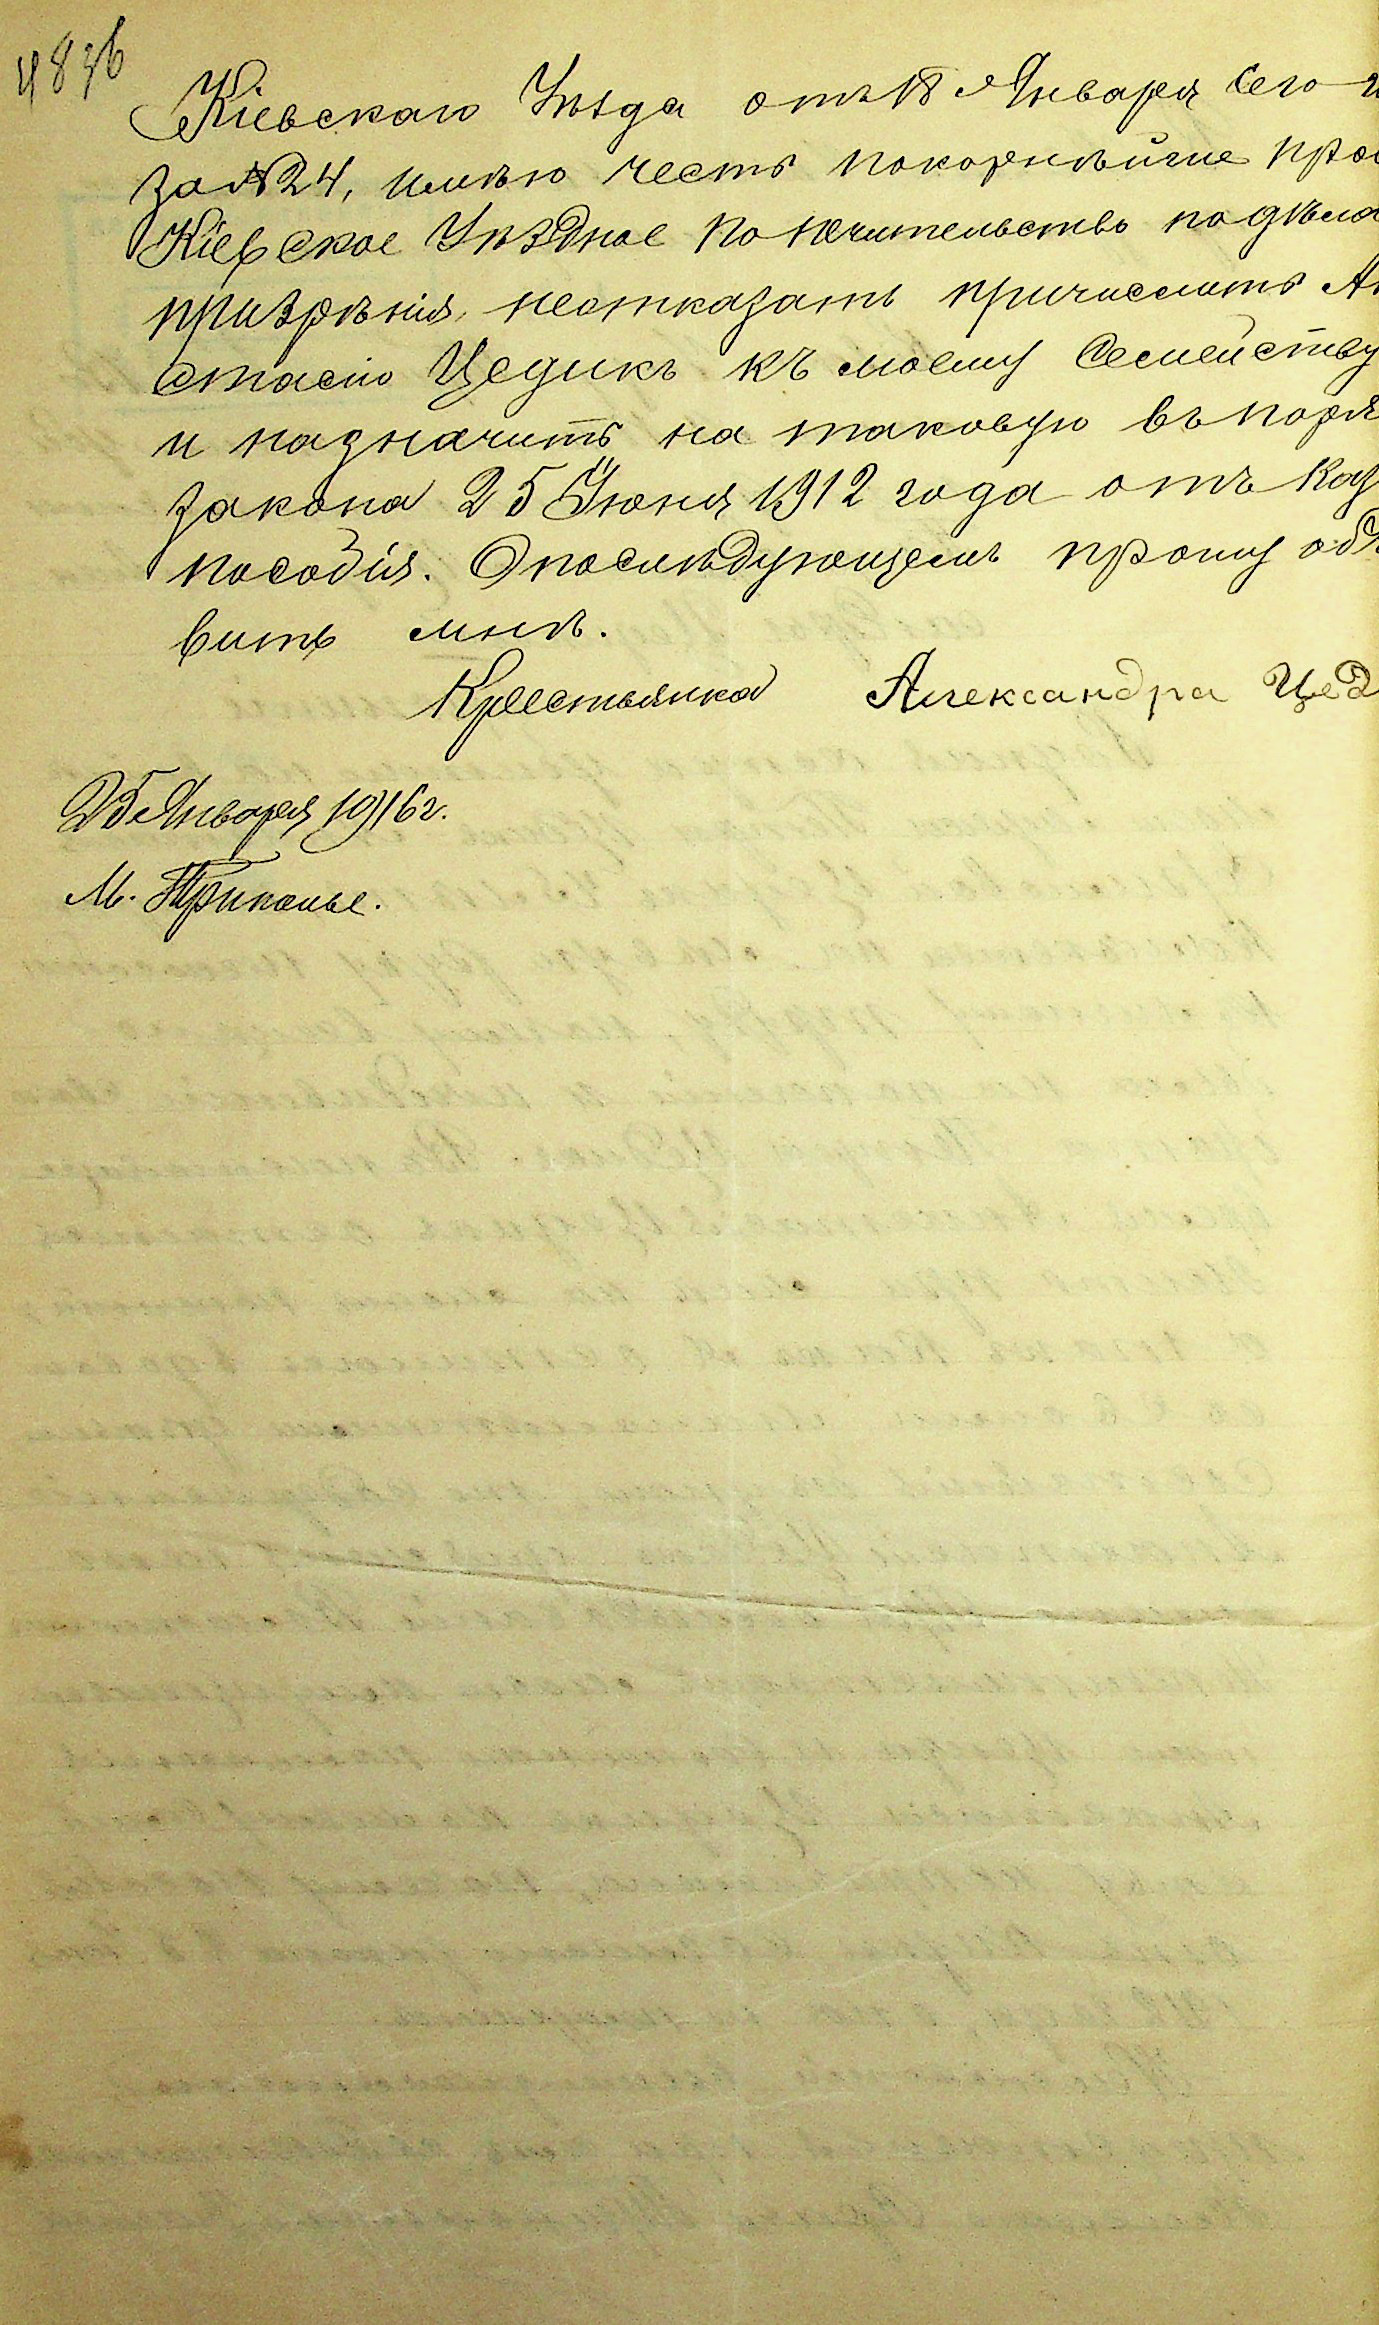 483б
Кіевскаго Уѣзда отъ 18 Января сего г
за №24, имѣю честь покорнѣйше про
Кіевское Уѣздное Попечительство по дѣла
призрѣнія, неотказать причислить Ан
стасію Цедикъ къ моему Семейству
и назначить на таковую въ поря
закона 25 Іюня 1912 года отъ Каз
пособія. О послѣдующемъ прошу объ
вить мнѣ.
Крестьянка Александра Цед
25 Января 1916 г.
М. Триполье.